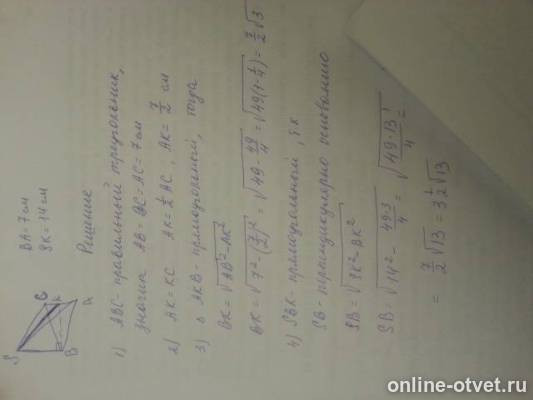 S
C
K
B
A
BA=7см
SK=14см
Решение
1) ABC - правильный треугольник,
значит AB=BC=AC=7см
2) AK=KC AK=½AC, AK=7/2 см
3) △AKB - прямоугольный, тогда
BK=√(AB²-AK²)
BK=√(7²-(7/2)²)=√(49-49/4)=√(49(1-1/4))=7/2√3
4) SBK - прямоугольный, т.к
SB - перпендикулярно основанию
SB=√(SK²-BK²)
SB=√(14²-49·3/4)=√(49·13/4)=
=7/2√13=3½√13
online-otvet.ru